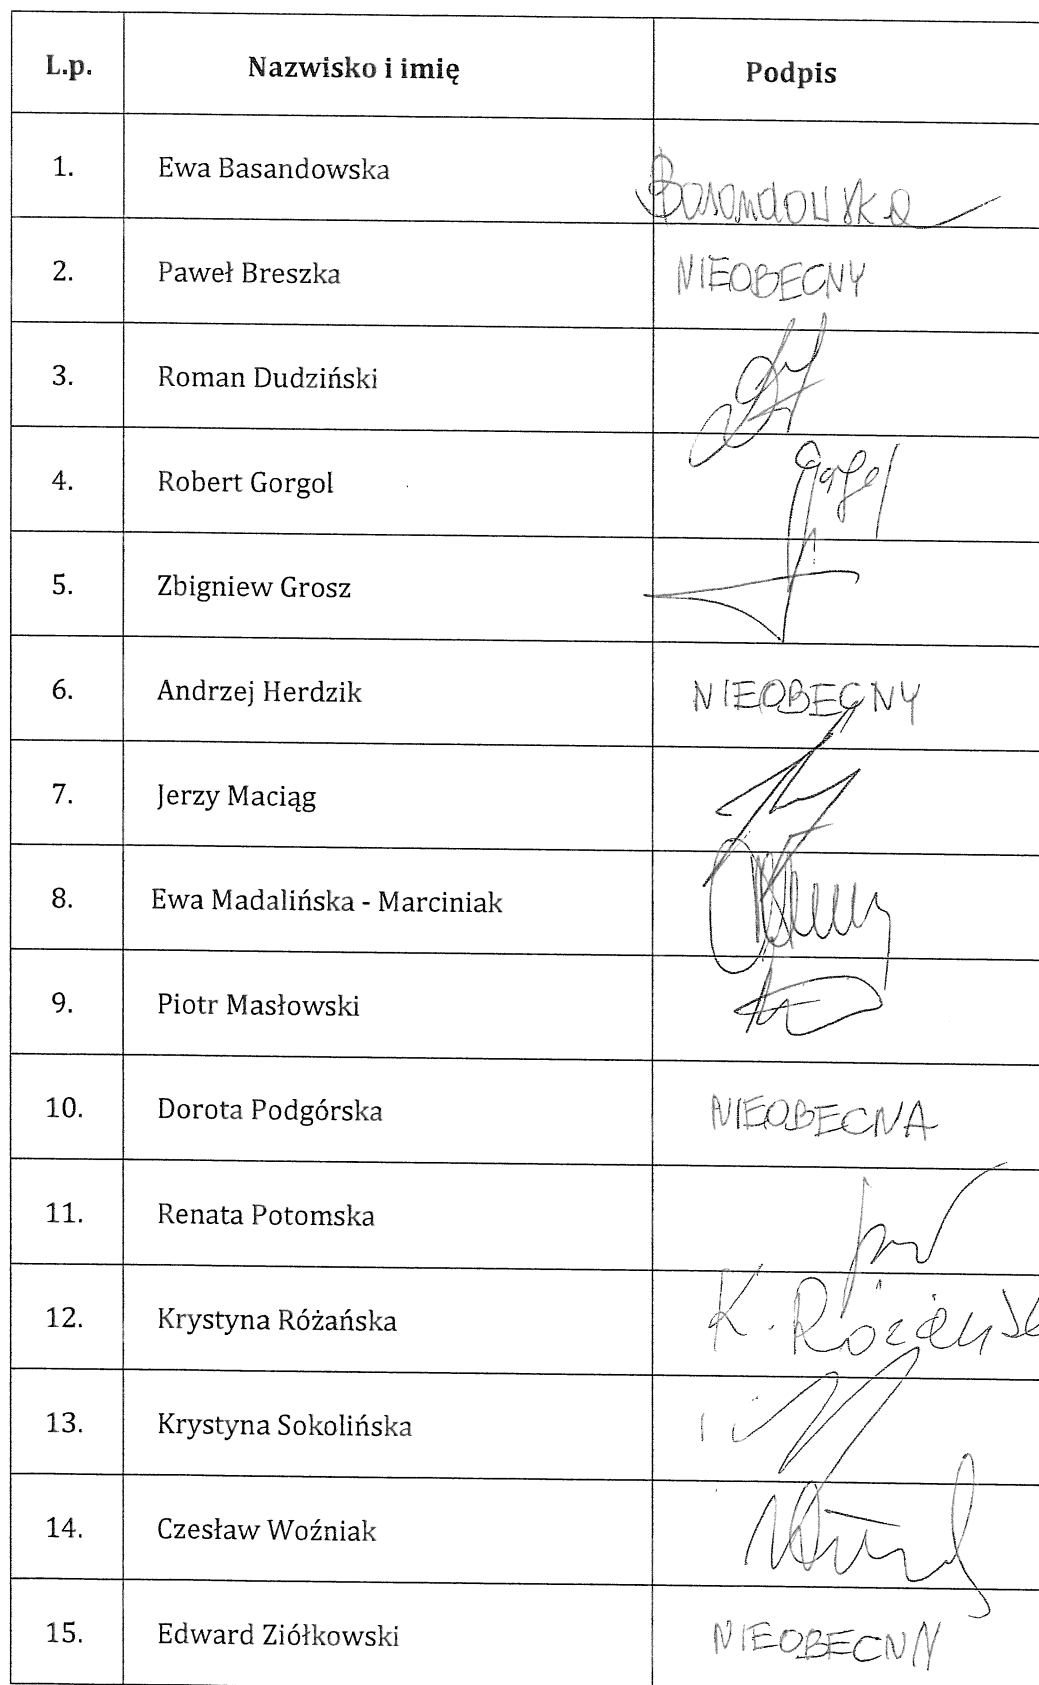 L.p. Nazwisko i imię Podpis
1. Ewa Basandowska Basandowska
2. Paweł Breszka NIEOBECNY
3. Roman Dudziński
4. Robert Gorgol
5. Zbigniew Grosz
6. Andrzej Herdzik NIEOBECNY
7. Jerzy Maciąg
8. Ewa Madalińska - Marciniak
9. Piotr Masłowski
10. Dorota Podgórska NIEOBECNA
11. Renata Potomska
12. Krystyna Różańska K. Różańsk
13. Krystyna Sokolińska
14. Czesław Woźniak
15. Edward Ziółkowski NIEOBECNY